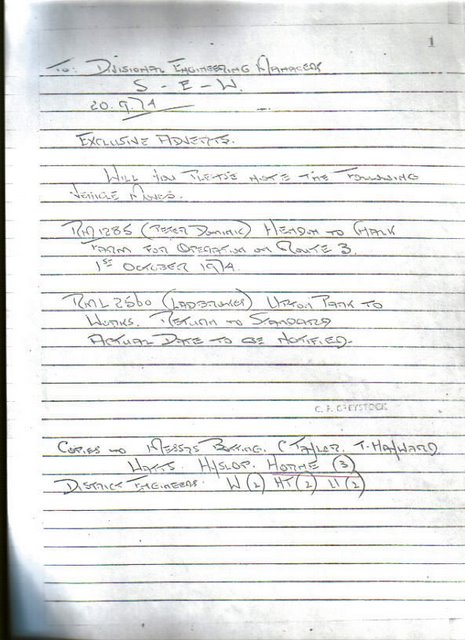 1
To: Divisional Engineering Managers
S - E - W.
20.9.74
Exclusive Adverts.
Will you please note the following
vehicle moves.
RM 1285 (Peter Dominic) Hendon to Chalk
Farm for operation on Route 3.
1st October 1974.
RML 2560 (Ladbrokes) Upton Park to
Works. Return to Standard
Actual Date to be notified.
C. A. GREYSTOCK
Copies to Messrs Botting. C Taylor. T. Hayward
Watts. Hyslop. Horne (3)
District Engineers. W(2) HT(2) U(2)